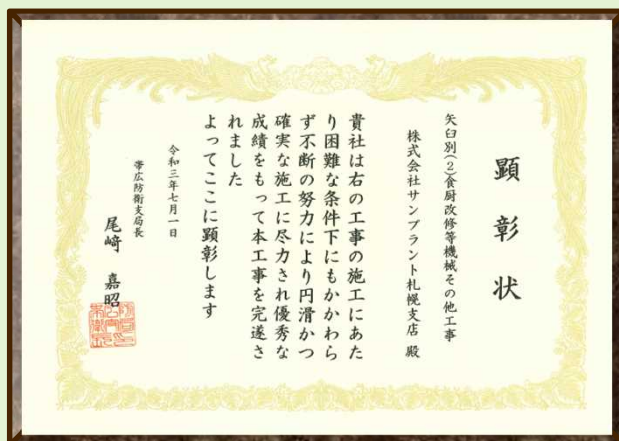 顕彰状
矢臼別(2)食厨改修等機械その他工事
株式会社サンプラント札幌支店 殿
貴社は右の工事の施工にあた
り困難な条件下にもかかわら
ず不断の努力により円滑かつ
確実な施工に尽力され優秀な
成績をもって本工事を完遂さ
れました
よってここに顕彰します
令和三年七月一日
帯広防衛支局長
尾﨑 嘉昭